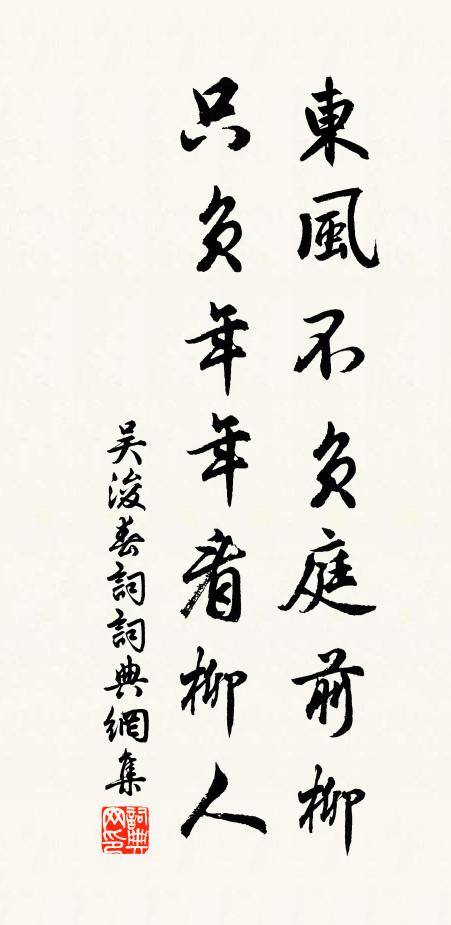 東風不負庭前柳
只負年年看柳人
吴浚春詞詞典網集
詞典网印